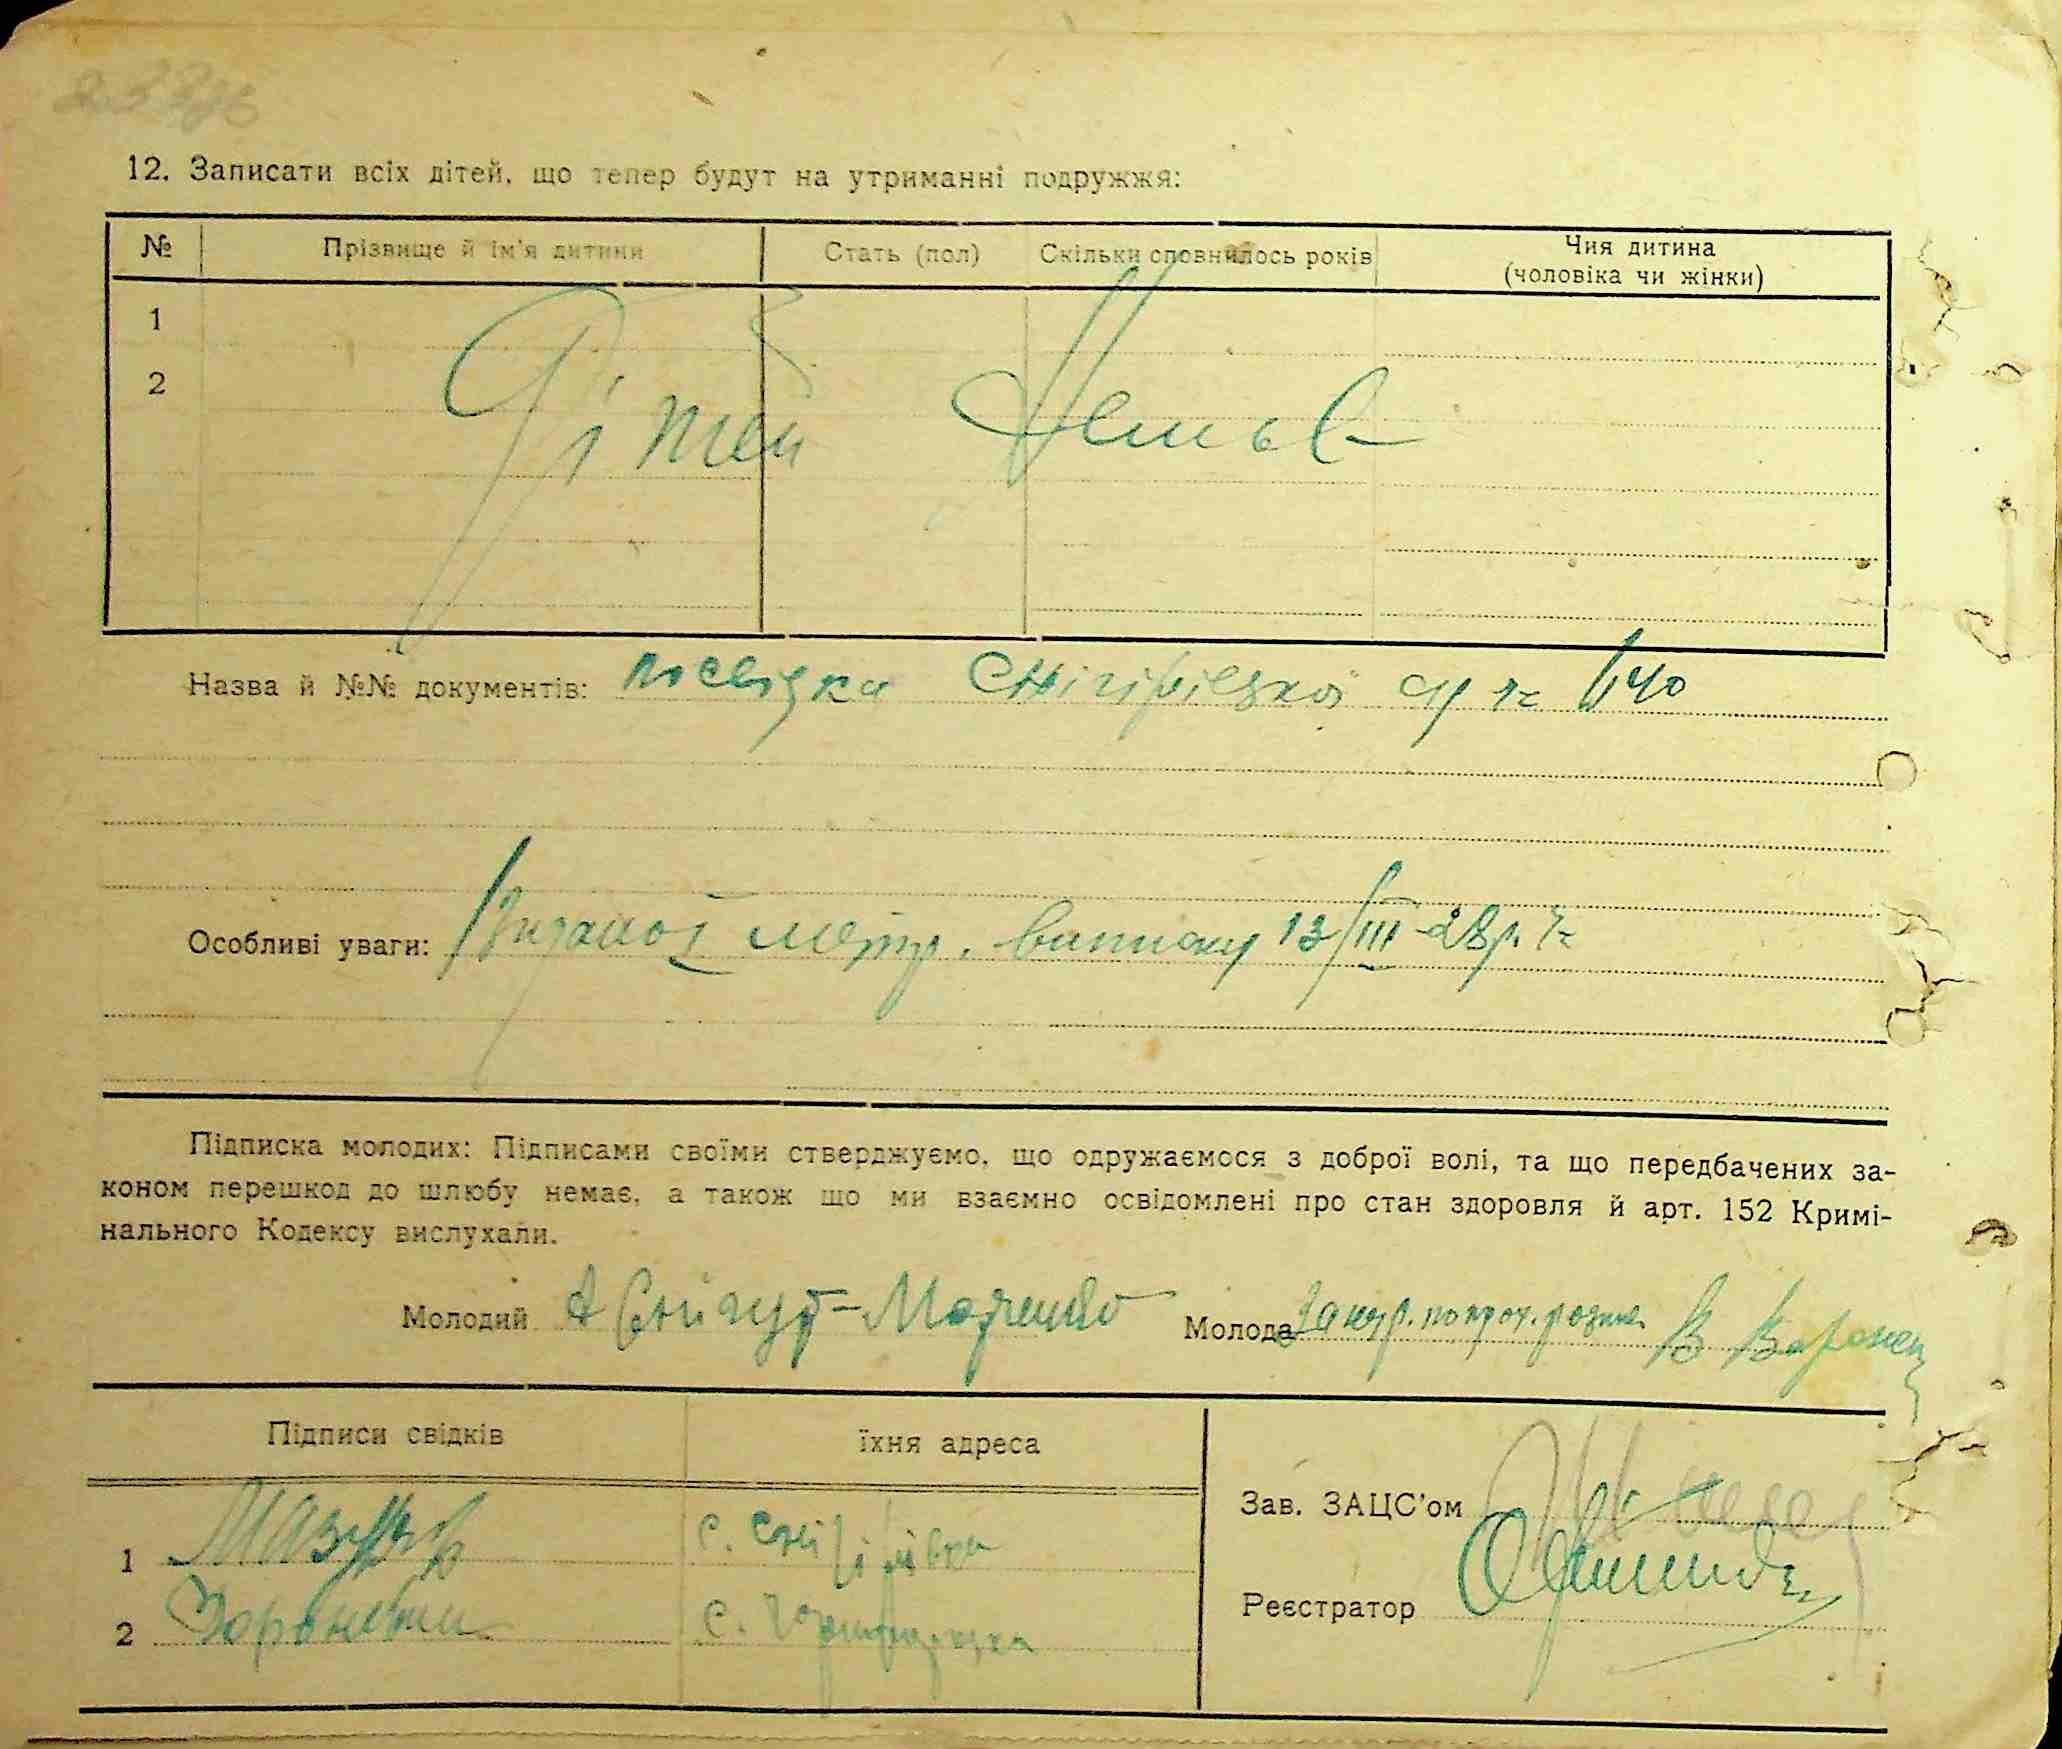 12. Записати всіх дітей, що тепер будут на утриманні подружжя:
№ Прізвище й ім'я дитини Стать (пол) Скільки сповнилось років Чия дитина (чоловіка чи жінки)
1
2
Дітей Немає
Назва й №№ документів: посвідка с/р за №40
Особливі уваги: Видано метр. виписку 13/III-28р. за
Підписка молодих: Підписами своїми стверджуємо, що одружаємося з доброї волі, та що передбачених за-
коном перешкод до шлюбу немає, а також що ми взаємно освідомлені про стан здоровля й арт. 152 Кримі-
нального Кодексу вислухали.
Молодий Молода
Підписи свідків їхня адреса
Зав. ЗАЦС'ом
1 Мазур с.
Реєстратор
2 с.